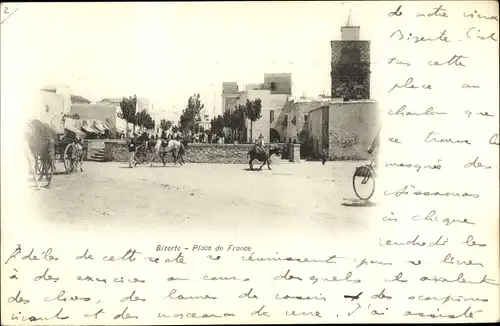 2
de notre
Bizerte. C'est
sur cette
place au
charbon que
se trouve la
mosquée des
Aïssaouas
où chaque
vendredi les
Bizerte - Place de France
fidèles de cette secte se réunissent pour se livrer
à des exercices au cours desquels ils avalent
des clous, des lames de rasoir et des scorpions
vivants et des morceaux de verre. J'ai assisté